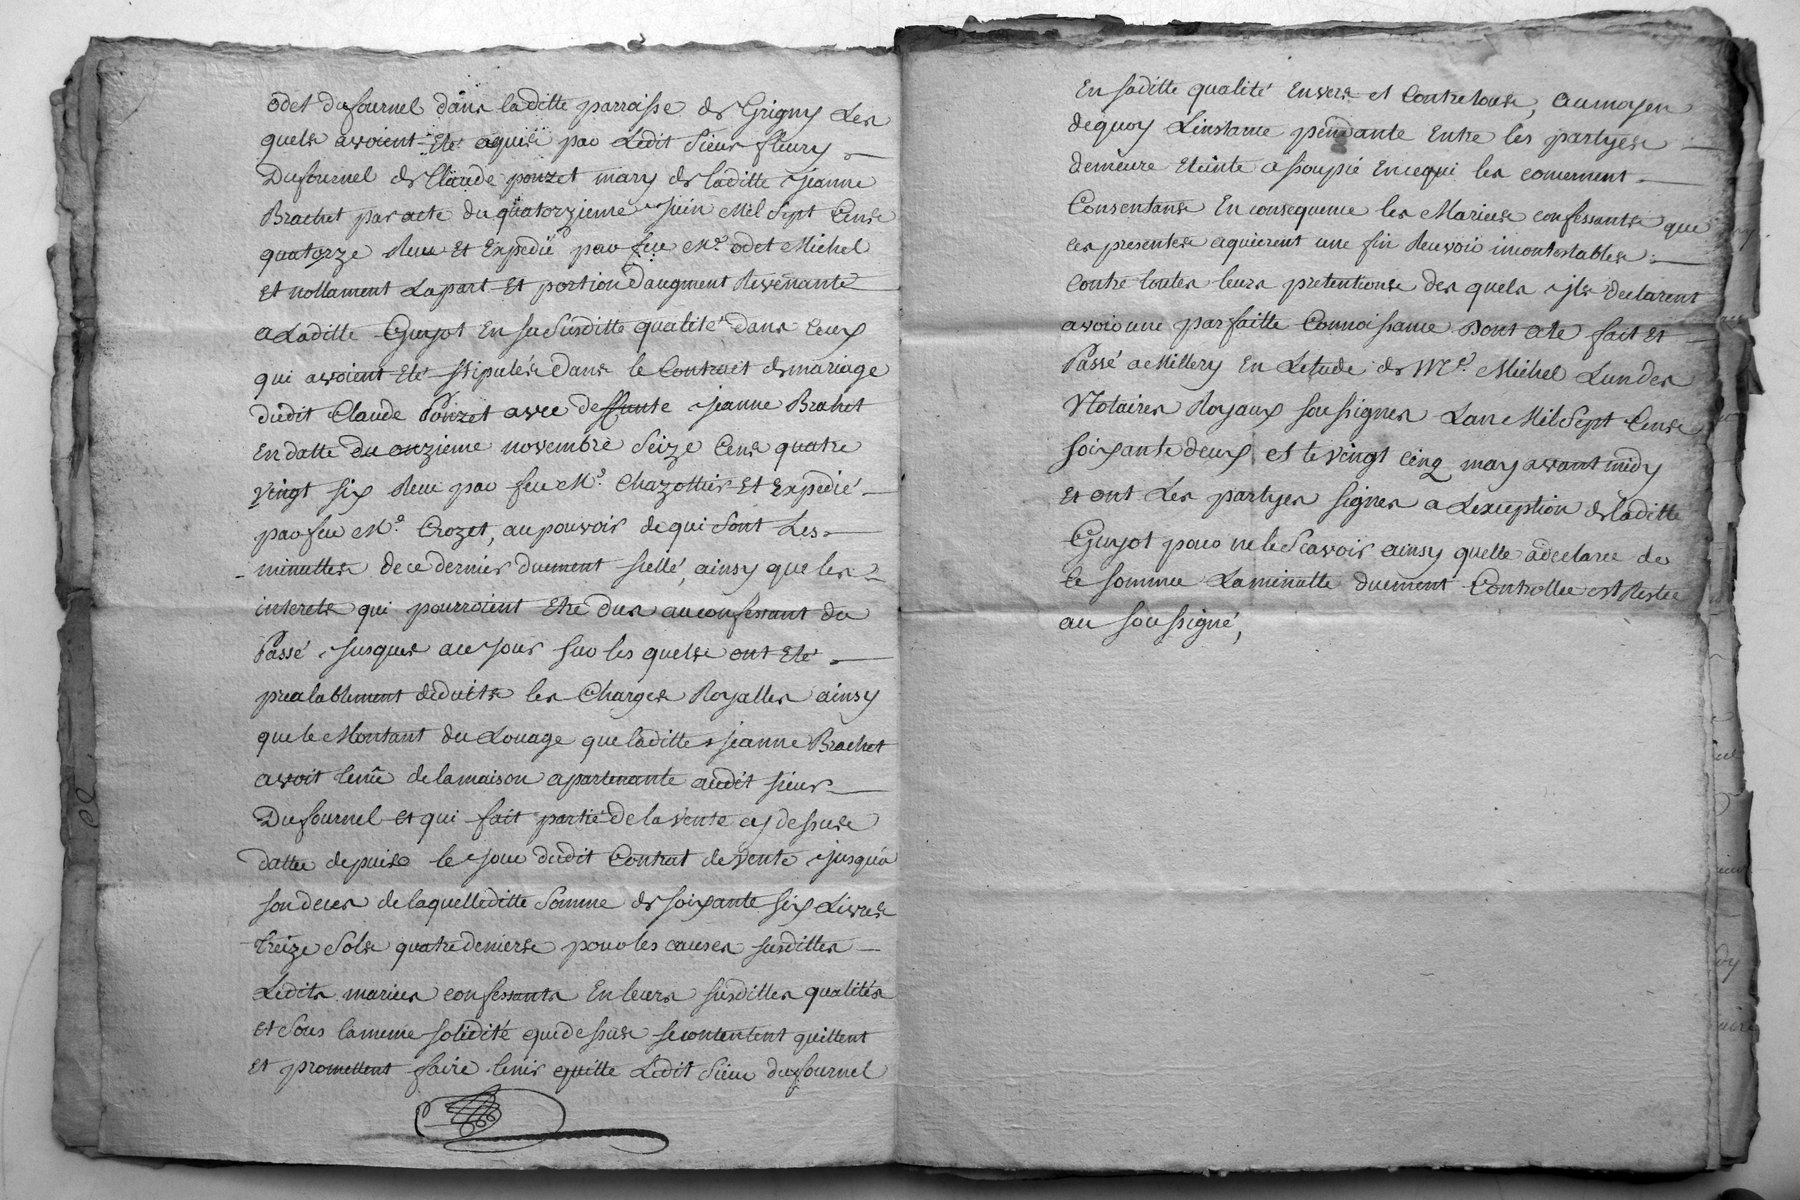 odet dufournel dans laditte parroisse de Grigny Les
quels avoient Eté aquis par Ledit Sieur fleury
Dufournel de Claude ponzet mary de laditte jeanne
Brachet par acte du quatorzieme juin Mil Sept Cens
quatorze Reçu Et Expedié par feu Me. odet Michel
Et nottament Lapart Et portion d'augment Revenante
a Laditte Guyot En sa Susditte qualité dans Ceux
qui avoient Eté stipulés Dans le Contract de mariage
dudit Claude Ponzet avec deffunte jeanne Brachet
En datte du onzieme novembre Seize Cens quatre
vingt six Reçu par feu Me. Chazottier Et Expedié
par feu Me. Crozet, au pouvoir de qui Sont Les
minuttes de ce dernier duement scellé, ainsy que les
interets qui pourroient Etre dus au confessant du
Passé jusques a ce jour sur les quels ont Eté
prealablement deduits les Charges Royalles ainsy
que le Montant du Louage que laditte jeanne Brachet
avoit tenüe de la maison apartenante audit sieur
Dufournel et qui fait partie de la vente cy dessus
dattée depuis le jour dudit Contrat de vente jusqu'a
son deces de laquelle ditte Somme de soixante six Livres
treize Sols quatre deniers pour les causes susdittes
Lesdits mariés confessants En leurs susdittes qualités
et Sous la meme solidité que dessus se contentent quittent
et promettent faire tenir quitte Ledit Sieur dufournel
En saditte qualité Envers et Contre tous, au moyen
de quoy Linstance pendante Entre les partyes
demeure Eteinte assoupie En ce qui les concernent
Consentans En consequence les Mariés confessants que
ces presentes aquierent une fin de nonvoir incontestables
Contre toutes leurs pretentions des quels jls declarent
avoir une parfaitte Connoissance Dont acte fait Et
Passé a Millery En Letude de Me. Michel Lun des
Notaires Royaux soussignes Lan Mil Sept Cens
soixante deux et le vingt cinq may avant midy
Et ont Les partyes signes a Lexception de laditte
Guyot pour ne le Scavoir ainsy quelle a declaré de
ce sommée La minutte duement Controllée est Restée
au soussigné,